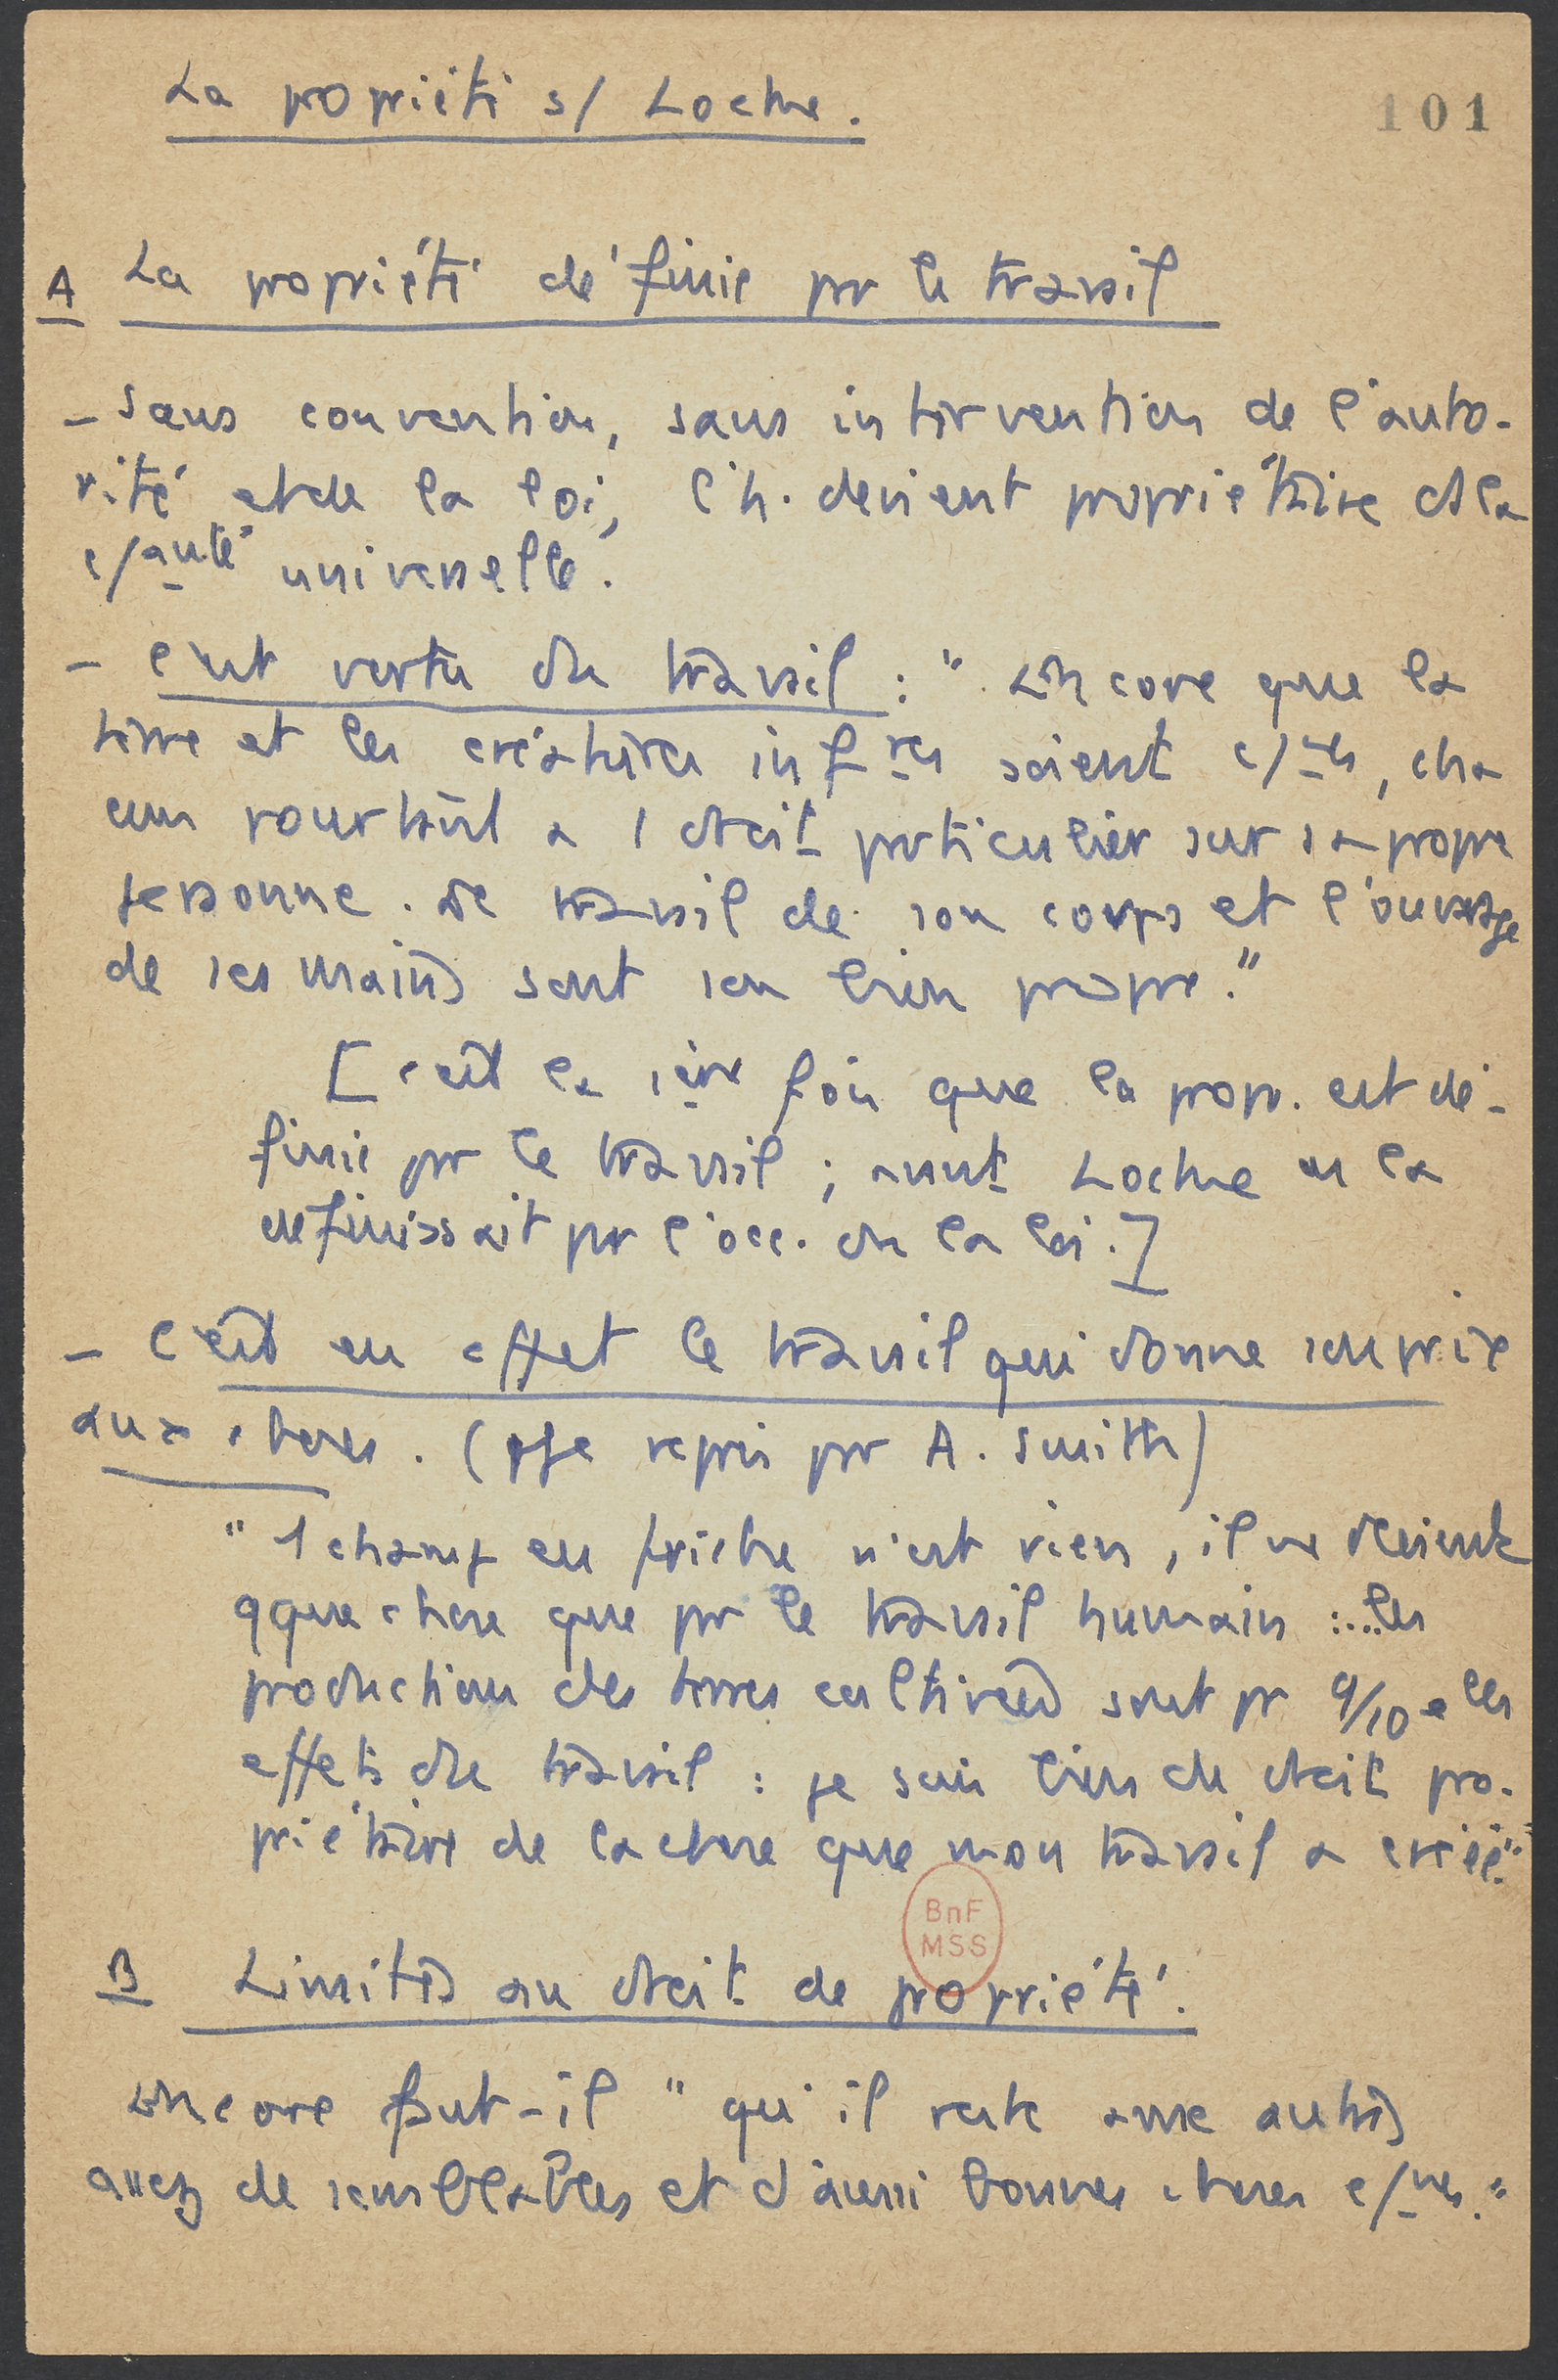 La propriété s/ Locke.
101
A La propriété définie pr le travail
- Sans convention, sans intervention de l'auto-
rité et de la loi, l'h. devient propriétaire ds la
c/auté universelle.
- c'est vertu du travail : " Encore que la
terre et les créatures infres soient c/nes, cha
cun pourtant a 1 droit particulier sur sa propre
personne. Le travail de son corps et l'ouvrage
de ses mains sont son bien propre."
[c'est la 1ère fois que la propr. est dé-
finie pr le travail ; avant Locke on la
définissait pr l'occ. ou la loi.]
- C'est en effet le travail qui donne son prix
aux choses. (pge repris pr A. Smith)
" 1 champ en friche n'est rien, il ne devient
qque chose que pr le travail humain : ... les
productions des terres cultivées sont pr 9/10e les
effets du travail : je suis bien de droit pro-
priétaire de la chose que mon travail a créée."
BnF
MSS
B Limites au droit de propriété.
Encore faut-il " qu'il reste aux autres
assez de semblables et d'aussi bonnes choses c/nes."